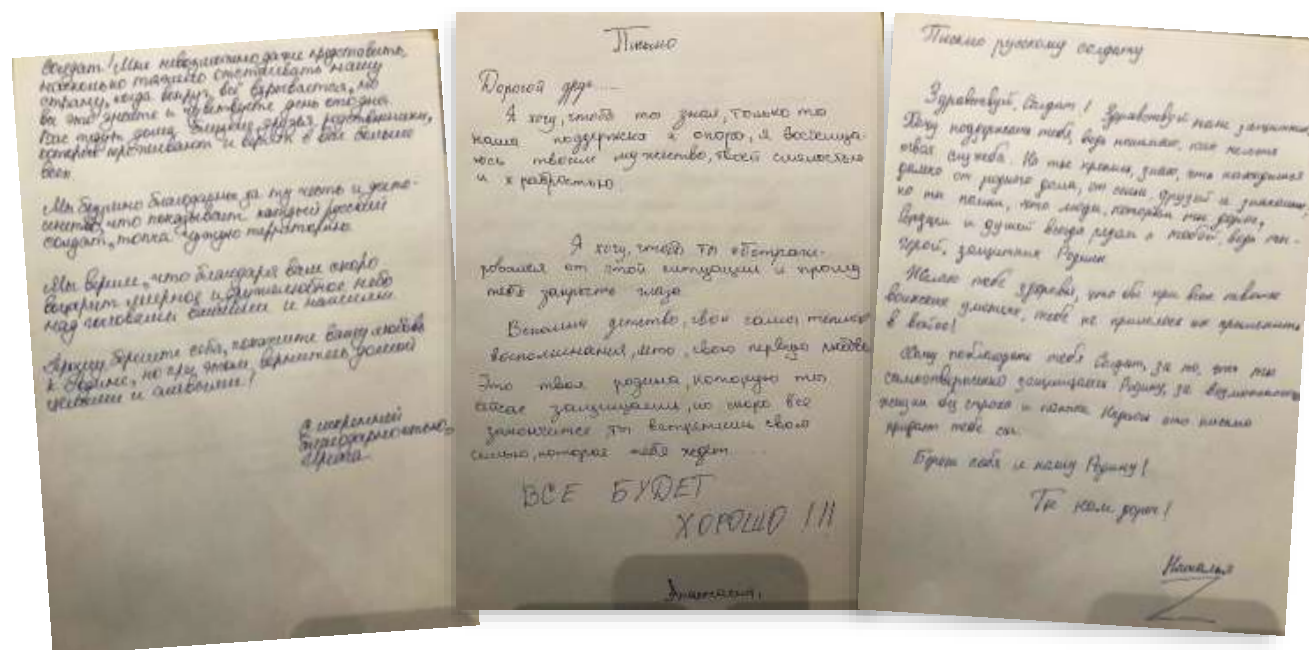 Солдат! Мне невозможно даже представить,
насколько тяжело отстаивать нашу
страну, когда вокруг всё взрывается, но
вы это знаете и чувствуете день ото дня.
Вас ждут дома близкие, друзья, родственники,
которые проживают и верят в вас больше
всех
Мы безумно благодарны за ту честь и досто-
инство, что показывает каждый русский
солдат, топча чужую территорию.
Мы верим, что благодаря вам скоро
воцарит мирное и дружелюбное небо
над головами вашими и нашими
Прошу, берегите себя, покажите вашу любовь
к Родине, но при этом, вернитесь домой
целыми и живыми!
С искренней
благодарностью,
Письмо
Дорогой друг.....
Я хочу, чтоб ты знал, только ты
наша поддержка и опора, я восхища-
юсь твоим мужеством, твоей смелостью
и храбростью.
Я хочу, чтоб ты абстраги-
ровался от этой ситуации и прошу
тебя закрыть глаза
Вспомни детство, свои самые теплые
воспоминания, лето, свою первую любовь
Это твоя родина, которую ты
сейчас защищаешь, но скоро все
закончится ты встретишь свою
семью, которая тебя ждет.....
ВСЕ БУДЕТ
ХОРОШО !!!
Анастасия.
Письмо русскому солдату
Здравствуй, Солдат! Здравствуй наш защитник
Хочу поддержать тебя, ведь понимаю, как нелегка
твоя служба. На тебе знаю, что находишься
далеко от родного дома, от семьи, друзей и знакомых,
но ты помни, что люди, которым ты дорог,
сердцем и душой всегда рядом с тобой, ведь ты -
герой, защитник Родины
Желаю тебе здоровья, что бы при всех твоих
воинских умениях, тебе не пришлось их применить
в войне!
Хочу поблагодарить тебя Солдат, за то, что ты
самоотверженно защищаешь Родину, за возможность
жить без страха и паники Надеюсь это письмо
придаст тебе сил.
Береги себя и нашу Родину!
Ты нам дорог!
Наталья
Z